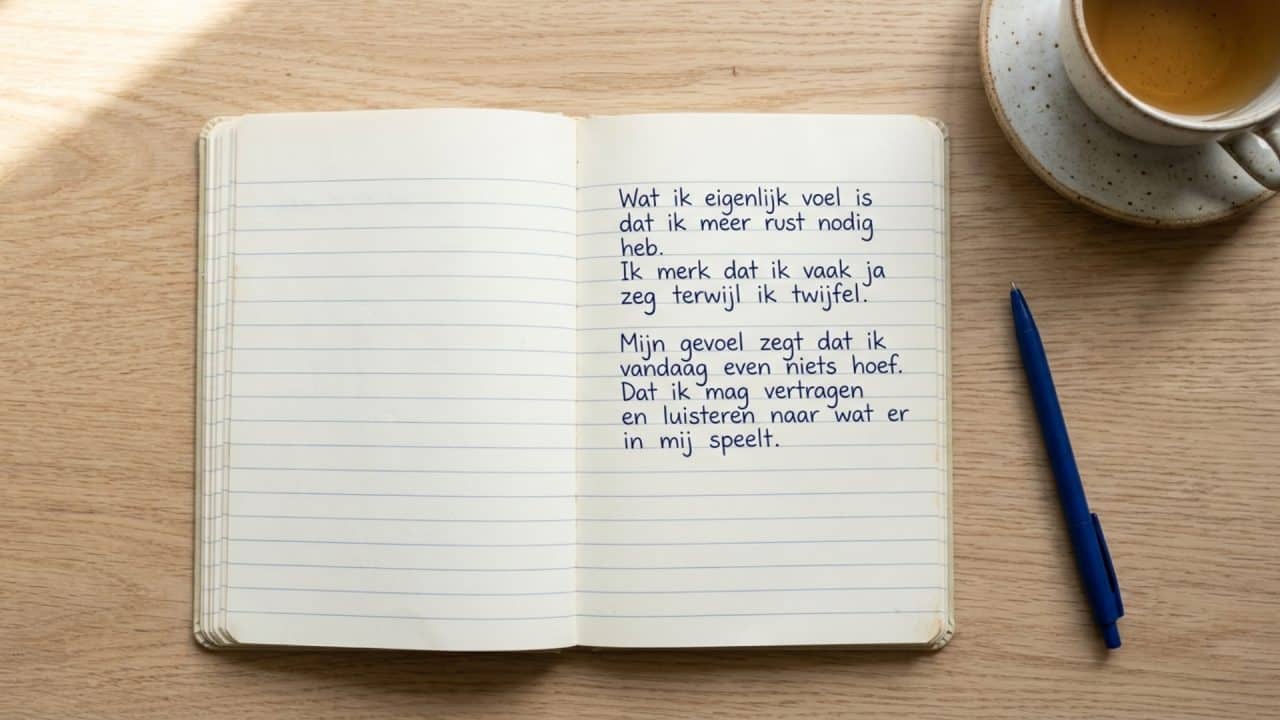 Wat ik eigenlijk voel is
dat ik meer rust nodig
heb.
Ik merk dat ik vaak ja
zeg terwijl ik twijfel.
Mijn gevoel zegt dat ik
vandaag even niets hoef.
Dat ik mag vertragen
en luisteren naar wat er
in mij speelt.